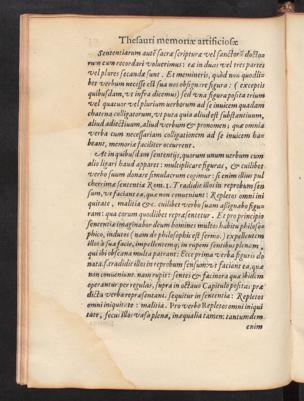 Thesauri memoriæ artificiosæ
Sententiarum autē sacræ scripturæ vel sanctorū doctorum
cum recordari voluerimus: ea in duas vel tres partes
vel plures secandæ sunt. Et memineris, quòd non quodlibet
verbum necesse est sua nos obsignare figura: (exceptis
quibusdam, vt infra dicemus) sed vna figura posita trium
vel quatuor vel plurium verborum ad se inuicem quadam
chatena colligatorum, vt puta quia aliud est substantiuum,
aliud adiectiuum, aliud verbum & pronomen: quæ omnia
verba cum necessariam colligationem ad se inuicem habeant,
memoriæ faciliter occurrent.
At in quibusdam sententijs, quorum unum verbum cum
alio ligari haud apparet: multiplicare figuras, & cuilibet
verbo suum donare simulacrum cogimur: si enim illius pulcherrimæ
sententiæ Rom. 1. Tradidit illos in reprobum sensum,
vt faciant ea, quæ non conueniunt: Repletos omni iniquitate,
malitia &c. cuilibet verbo suam assignabo figuram:
qua eorum quodlibet repræsentetur. Et pro principio
sententiæ imaginabor deum homines multos habitu philosophico,
indutos (nam de philosophis est sermo,) expellentem
illos à sua facie, impellentemq; in rupem sentibus plenam,
qui ibi obscœna multa patrant: Ecce prima verba figuris donata.
Tradidit illos in reprobum sensum: vt faciant ea, quæ
non conueniunt. nam rupis: sentes & facinora quæ ibidem
operantur: per regulas, supra in octauo Capitulo positas prædicta
verba repræsentant. sequitur in sententia: Repletos
omni iniquitate: malitia. Pro verbo Repletos omni iniquitate,
illos vasa plena, inæqualia tamen: tantumdem
enim